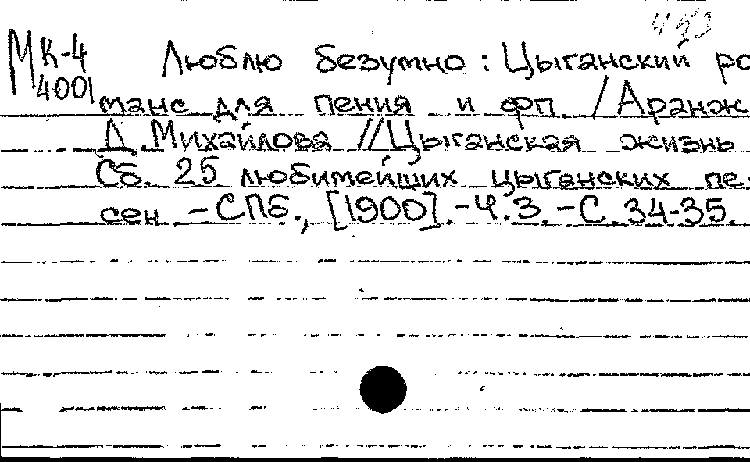 МК-4 Люблю безумно: Цыганский ро
4001 манс для пения и фп. / Аранж.
Д. Михайлова // Цыганская жизнь
Сб. 25 любимейших цыганских пе-
сен. - СПб., [1900]. - Ч.3. - С. 34-35.